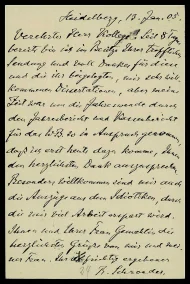 Heidelberg, 13. Jan. 05.
Verehrter Herr Kollege! Seit 8 Tagen
bereits bin ich im Besitze Ihrer trefflichen
Sendung und voll Dankes für diese
und die ihr beigelegten, mir sehr will-
kommenen Dissertationen, aber meine
Zeit war um die Jahreswende durch
den Jahresbericht und
für das WB so in Anspruch genommen,
daß ich erst heute dazu komme, Ihnen
den herzlichsten Dank auszusprechen.
Besonders willkommen sind mir auch
die Auszüge aus den Idiotiken, durch
die mir viel Arbeit erspart wird.
Ihnen und Ihrer Frau Gemahlin die
herzlichsten Grüße von mir und mei-
ner Frau. Ihr ergebener
R. Schroeder